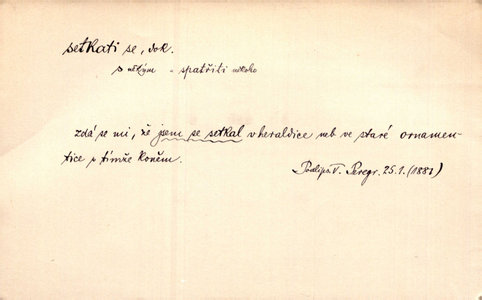 setkati se, dok.
s někým - spatřiti někoho
zdá se mi, že jsem se setkal v heraldice neb ve staré ornamen-
tice s tímže koněm.
Podlipa. V. Peregr. 25.1. (1881)